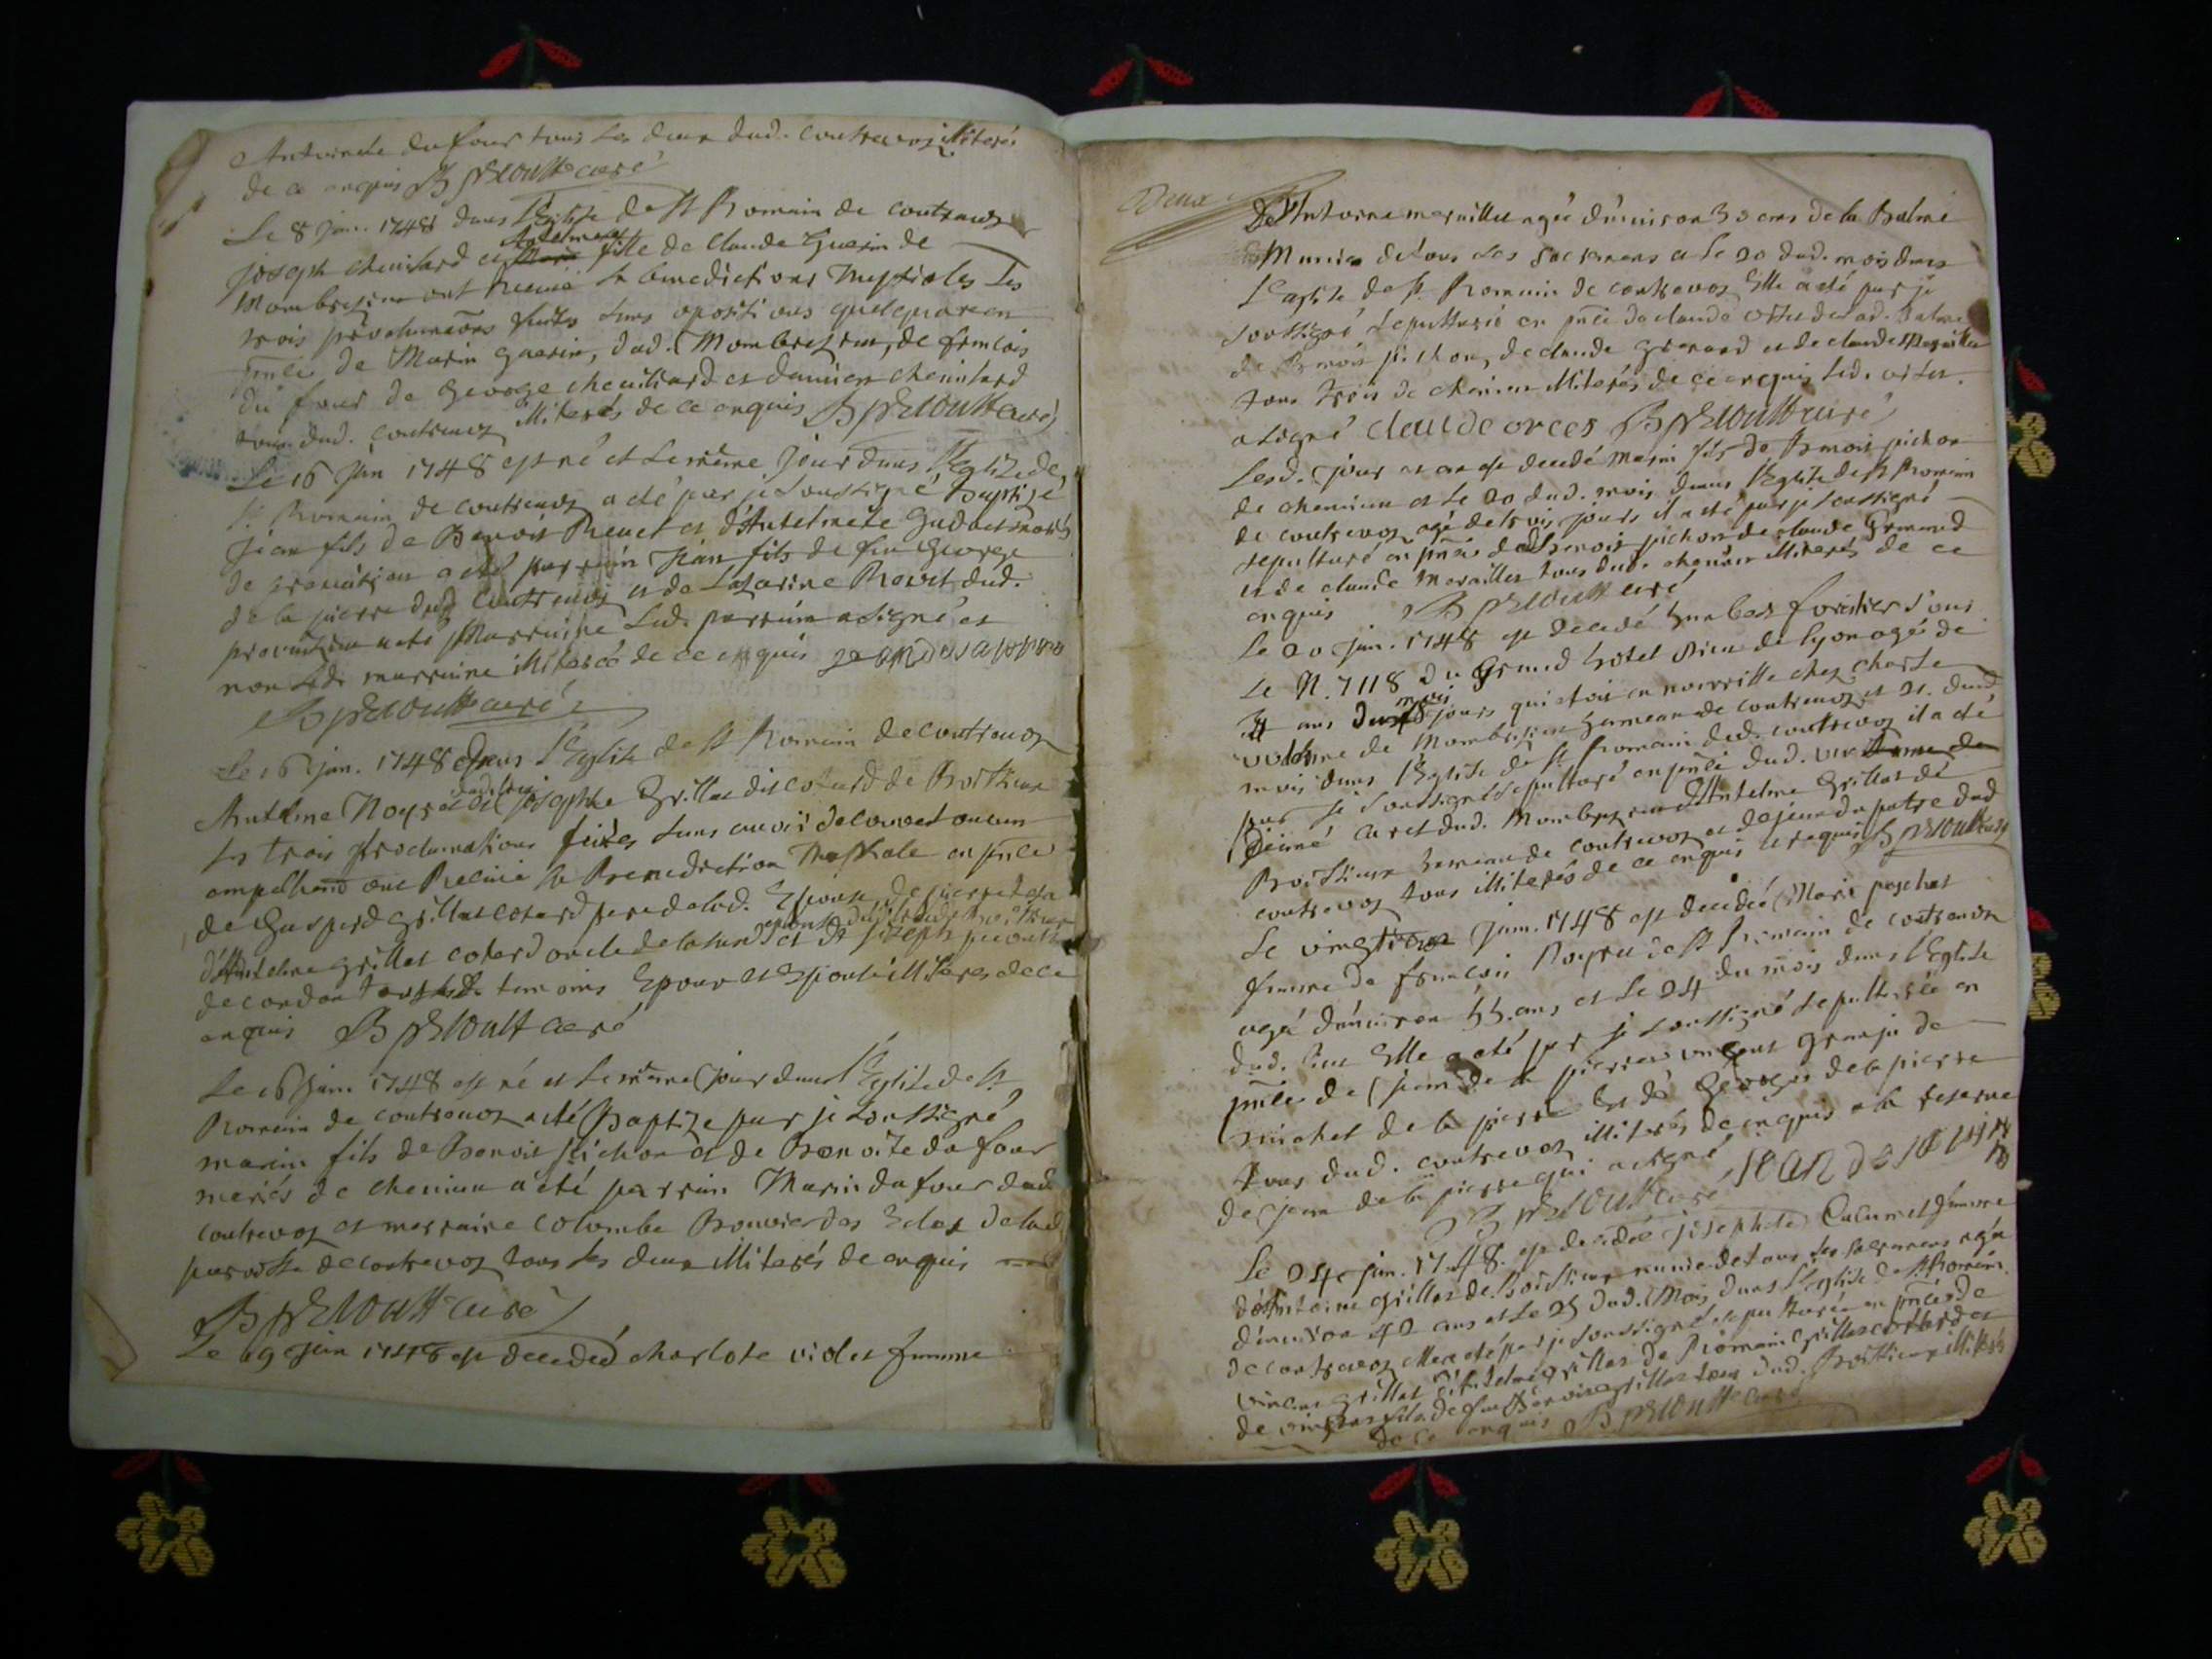 Antoinete du four tous les deux dud. contrevoz illiterés
de ce enquis B prloutt curé
Le 8 Jan. 1748 dans l'Eglise de St Romain de contrevoz
Joseph cheuilard et Antelmete fille de Claude Guerin de
Mombreysieu ont Recüe la benediction Nuptiales Les
trois proclamãons faites sans opositions quelquonca en
pñce de Marin Guerin, dud. Mombreysieu, de francois
du four de George cheuillard et damien cheuilard
tous dud. contrevoz illiterés de ce enquis B prloutt curé
Le 16 Jan 1748 est né et le même jour dans l'Eglize de
St. Romain de contrevoz a été par je soussigné baptizé
Jean fils de Benoit Reuet et d'Antelmete mariés
de a été parrain Jean fils de feu George
de la pierre dud contrevoz et de Lazarine dud.
a eté Marraine Led. parrain a signé et
non Lade marraine illiterée de ce enquis
B prloutt curé
Le 16 jan. 1748 dans l'Eglise de St Romain de contrevoz
Antelme Noyret dud. lieu et josephte Grillet dit cotard de Boissieux
les trois proclamations feites sans avoir decouvert aucun
empechemt ont Recüe la Benediction Nuptiale en pñce
de Gaspard grillet cotard pere de lad. Epouse, de pierre
d'Antelme grillet cotard oncle de lad. epouse et de Joseph
de cordon temoins Epoux et Epouse illiteres de ce
enquis B prloutt curé
Le 16 jan. 1748 est né et le même jour dans l'Eglise de St.
Romain de contrevoz a eté Baptize par je soussigné
marin fils de Benoit pichon et de Benoite du four
meriés de chemieu a eté parrain Marin du four dud
contrevoz et marraine Colombe Bouvier des Ecles de lad
paroisse de contrevoz tous les deux illiterés de enquis
B prloutt curé
Le 19e jan 1748 est decedeé charlote violet femme
Deux
De Antoine meraillet agée d'environ 30 ans de la Balme
Munie de tous Les Sacremens et Le 20 dud. mois dans
l'eglise de St. Romain de contrevoz Elle a été par je
soussigné sepulturée en pñce de claude orset de lad. Balme
de Benoit pichon, de claude Gremand et de claude Meraillet
tous trois de chemieu illiterés de ce enquis Led. orset
a signé claude orces B prloutt curé
Lesd. jour et an est decedé Marin fils de Benoit pichon
de chemieu et Le 20 dud. mois dans l'Eglise de St Romain
de contrevoz agé de trois jours il a eté par je soussigné
sepulturé en pñce de Benoit pichon de claude Gremand
et de claude Meraillet tous dud. chemieu illiterés de ce
enquis B prloutt curé
Le 20 jan. 1748 est decedé
Le N. 7118 du Grand hotel Dieu de lyon agé de
ans mois jours qui etoit en nourrisse chez charle
de Mombreysieu hameau de contrevoz et 21. dud
mois dans l'Eglise de St. Romain dud. contrevoz il a eté
par je soussigné sepulturé en pñce dud.
Aimé caret dud. Mombreysieu d'Antelme Grillet de
Boissieux hameau de contrevoz et de jean du patre dud
contrevoz tous illiterés de ce enquis et requis B prloutt curé
Le vingt jan. 1748 est decedeé Marie paschat
femme de francois Royret de St Romain de contrevoz
agée d'environ 55. ans et Le 24 du mois dans l'Eglise
dud. lieu Elle a eté par je soussigné sepulturée en
pñce de jean de la pierre vincent granju de
michel de la pierre et de George de la pierre
tous dud. contrevoz illiterés de enquis a la reserve
de jean de la pierre qui a signé
B prloutt curé
Le 24e jan. 1748. est decedeé josephte femme
d'Antoine grillet de Boissieux munie de tous les sacremens agée
d'environ 42 ans et Le 25 dud. Mois dans l'Eglise de St. Romain
de contrevoz Elle a eté par je soussigné sepulturée en pñce de
vincent grillet d'Antelme grillet de Romain grillet cotard et
de vincent fils de feu Benoit grillet tous dud. Boissieux illiterés
de ce enquis B prloutt curé